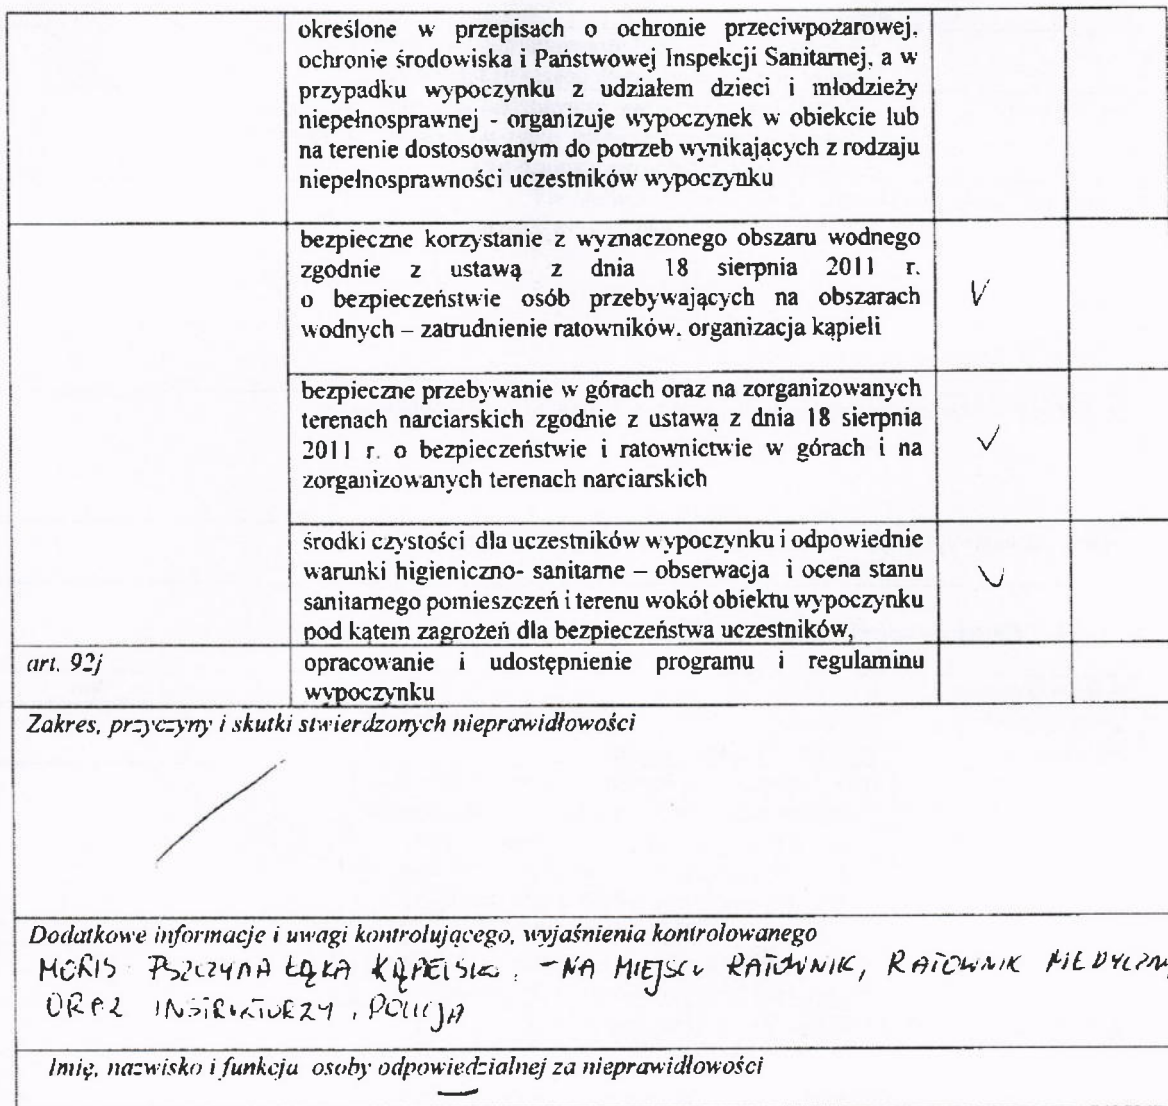 określone w przepisach o ochronie przeciwpożarowej,
ochronie środowiska i Państwowej Inspekcji Sanitarnej, a w
przypadku wypoczynku z udziałem dzieci i młodzieży
niepełnosprawnej - organizuje wypoczynek w obiekcie lub
na terenie dostosowanym do potrzeb wynikających z rodzaju
niepełnosprawności uczestników wypoczynku
bezpieczne korzystanie z wyznaczonego obszaru wodnego
zgodnie z ustawą z dnia 18 sierpnia 2011 r.
o bezpieczeństwie osób przebywających na obszarach
wodnych – zatrudnienie ratowników, organizacja kąpieli
V
bezpieczne przebywanie w górach oraz na zorganizowanych
terenach narciarskich zgodnie z ustawą z dnia 18 sierpnia
2011 r. o bezpieczeństwie i ratownictwie w górach i na
zorganizowanych terenach narciarskich
V
środki czystości dla uczestników wypoczynku i odpowiednie
warunki higieniczno- sanitarne – obserwacja i ocena stanu
sanitarnego pomieszczeń i terenu wokół obiektu wypoczynku
pod kątem zagrożeń dla bezpieczeństwa uczestników,
V
art. 92j
opracowanie i udostępnienie programu i regulaminu
wypoczynku
Zakres, przyczyny i skutki stwierdzonych nieprawidłowości
Dodatkowe informacje i uwagi kontrolującego, wyjaśnienia kontrolowanego
MORIS PSZCZYNA ŁĄKA KĄPIELISKO. - NA MIEJSCU RATOWNIK, RATOWNIK MEDYCZNY
ORAZ INSTRUKTORZY, POLICJA
Imię, nazwisko i funkcja osoby odpowiedzialnej za nieprawidłowości
—